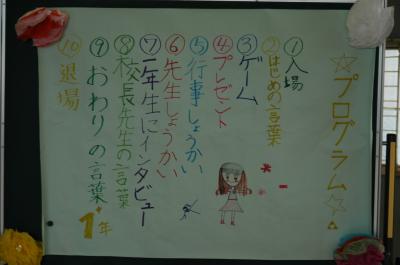 ☆プログラム☆
①入場
②はじめの言葉
③ゲーム
④プレゼント
⑤行事しょうかい
⑥先生しょうかい
⑦一年生にインタビュー
⑧校長先生の言葉
⑨おわりの言葉
⑩退場
1年